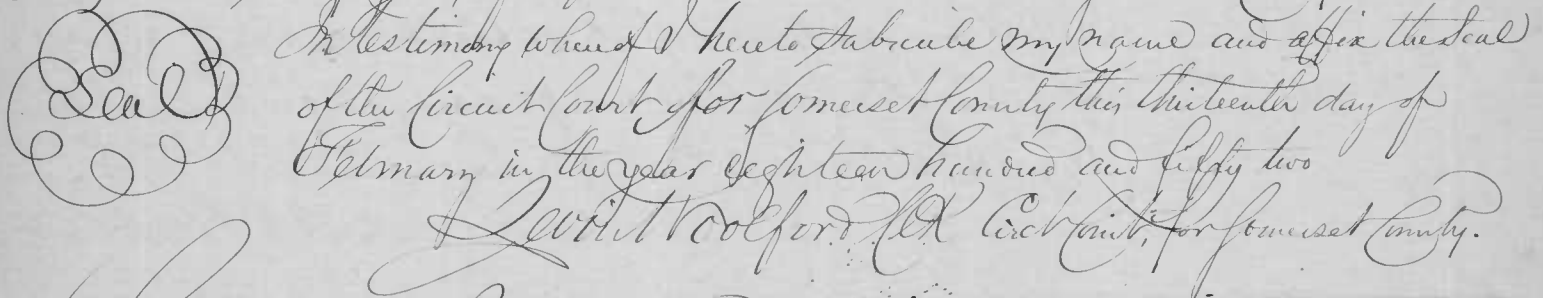 Seal
In Testimony whereof I hereto Subscribe my name and affix the Seal
of the Circuit Court for Somerset County this thirteenth day of
February in the year eighteen hundred and fifty two
Levin Woolford Clk Circt Court, for Somerset County.